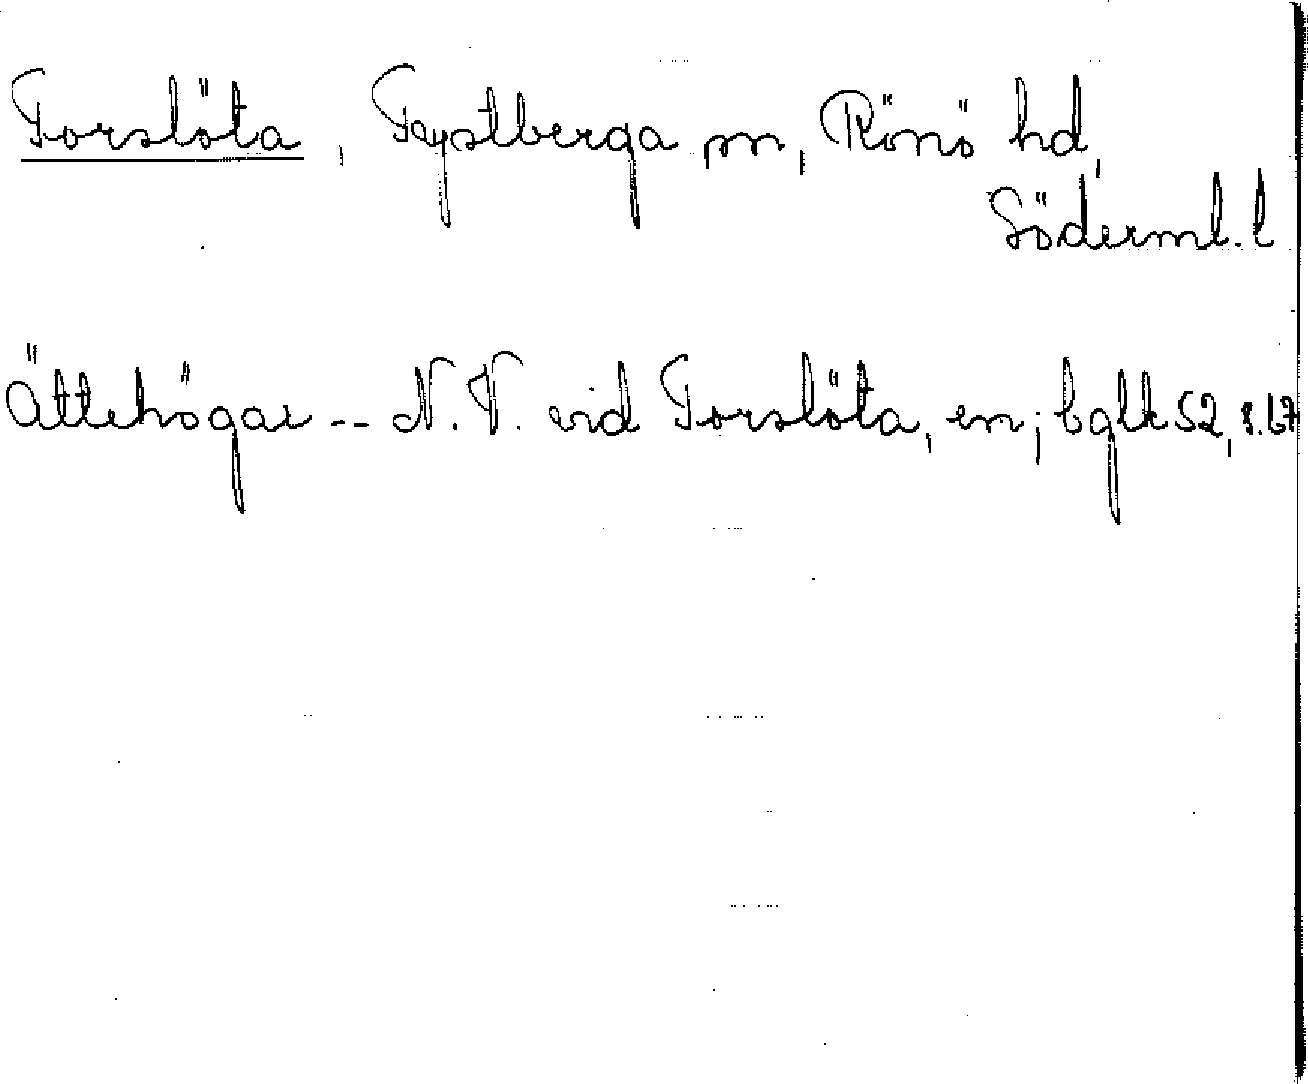 Torslöta, Tystberga sn, Rönö hd,
Söderml. l
Ättehögar -- N. V. vid Torslöta, en; bglk S2, s. 67